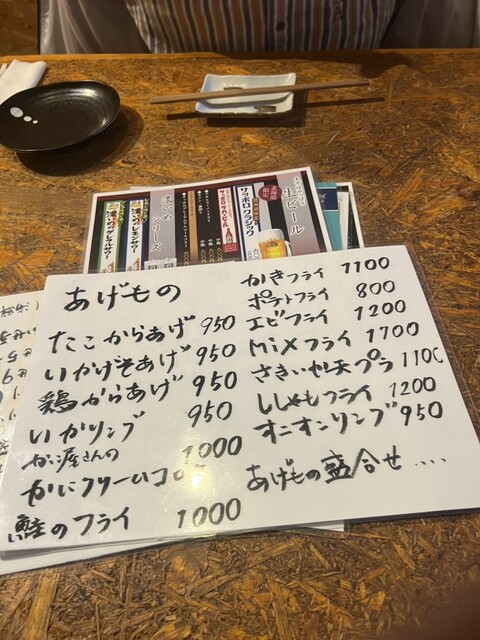 生ビール
北海道限定
サッポロクラシック
濃いめ
シリーズ
濃いめのレモンサワー
あげもの
たこからあげ 950
いかげそあげ 950
鶏からあげ 950
いかリング 950
かに屋さんの
かにクリームコロ 1000
鮭のフライ 1000
かきフライ 1100
ポテトフライ 800
エビフライ 1200
Mixフライ 1700
さきいか天プラ 1100
ししゃもフライ 1200
オニオンリング 950
あげもの盛合せ ....